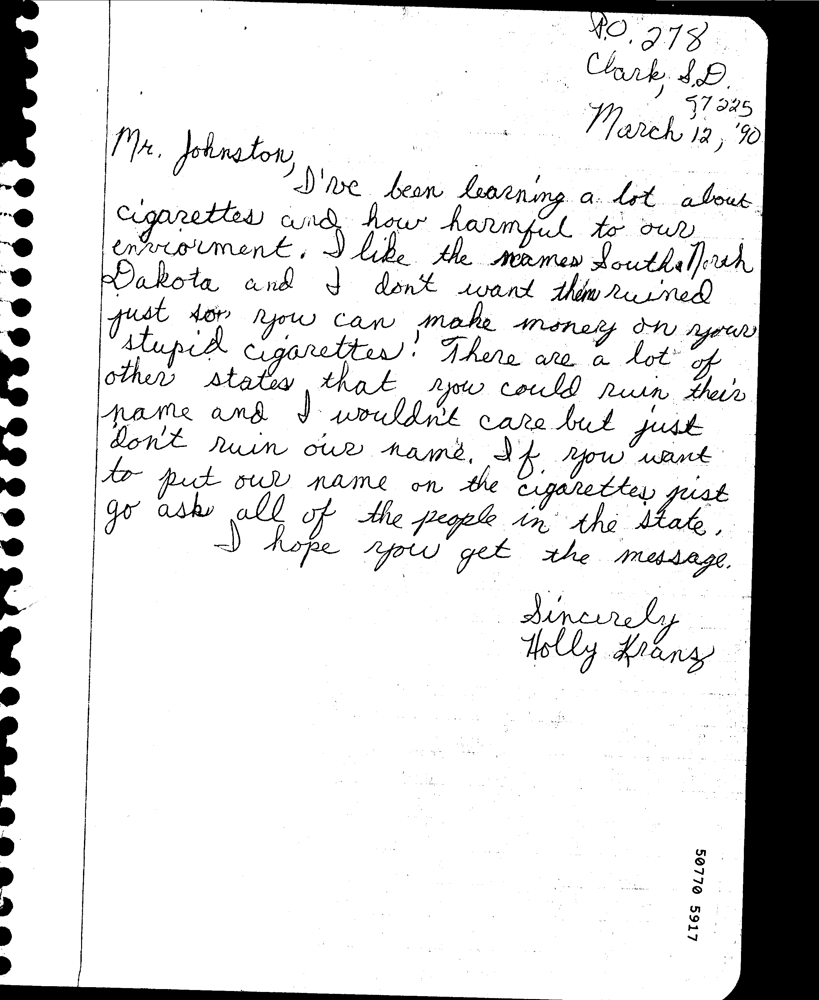 P.O. 278
Clark, S.D.
57225
March 12, '90
Mr. Johnston,
I've been learning a lot about
cigarettes and how harmful to our
enviorment. I like the names South & North
Dakota and I don't want them ruined
just so you can make money on your
stupid cigarettes! There are a lot of
other states that you could ruin their
name and I wouldn't care but just
don't ruin our name. If you want
to put our name on the cigarettes just
go ask all of the people in the state.
I hope you get the message.
Sincerely
Holly Kranz
50770 5917